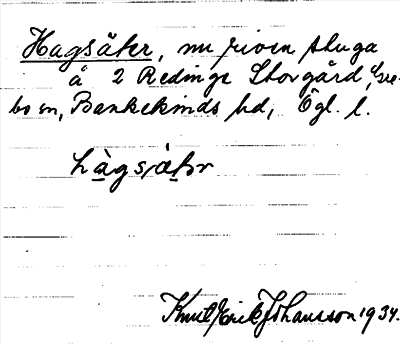 Hagsäter, nu riven stuga
å 2 Redinge Storgård, Gre-
bo sn, Bankekinds hd, Ögl. l.
hàgsä̀tər
Knut Erik Johansson 1934.